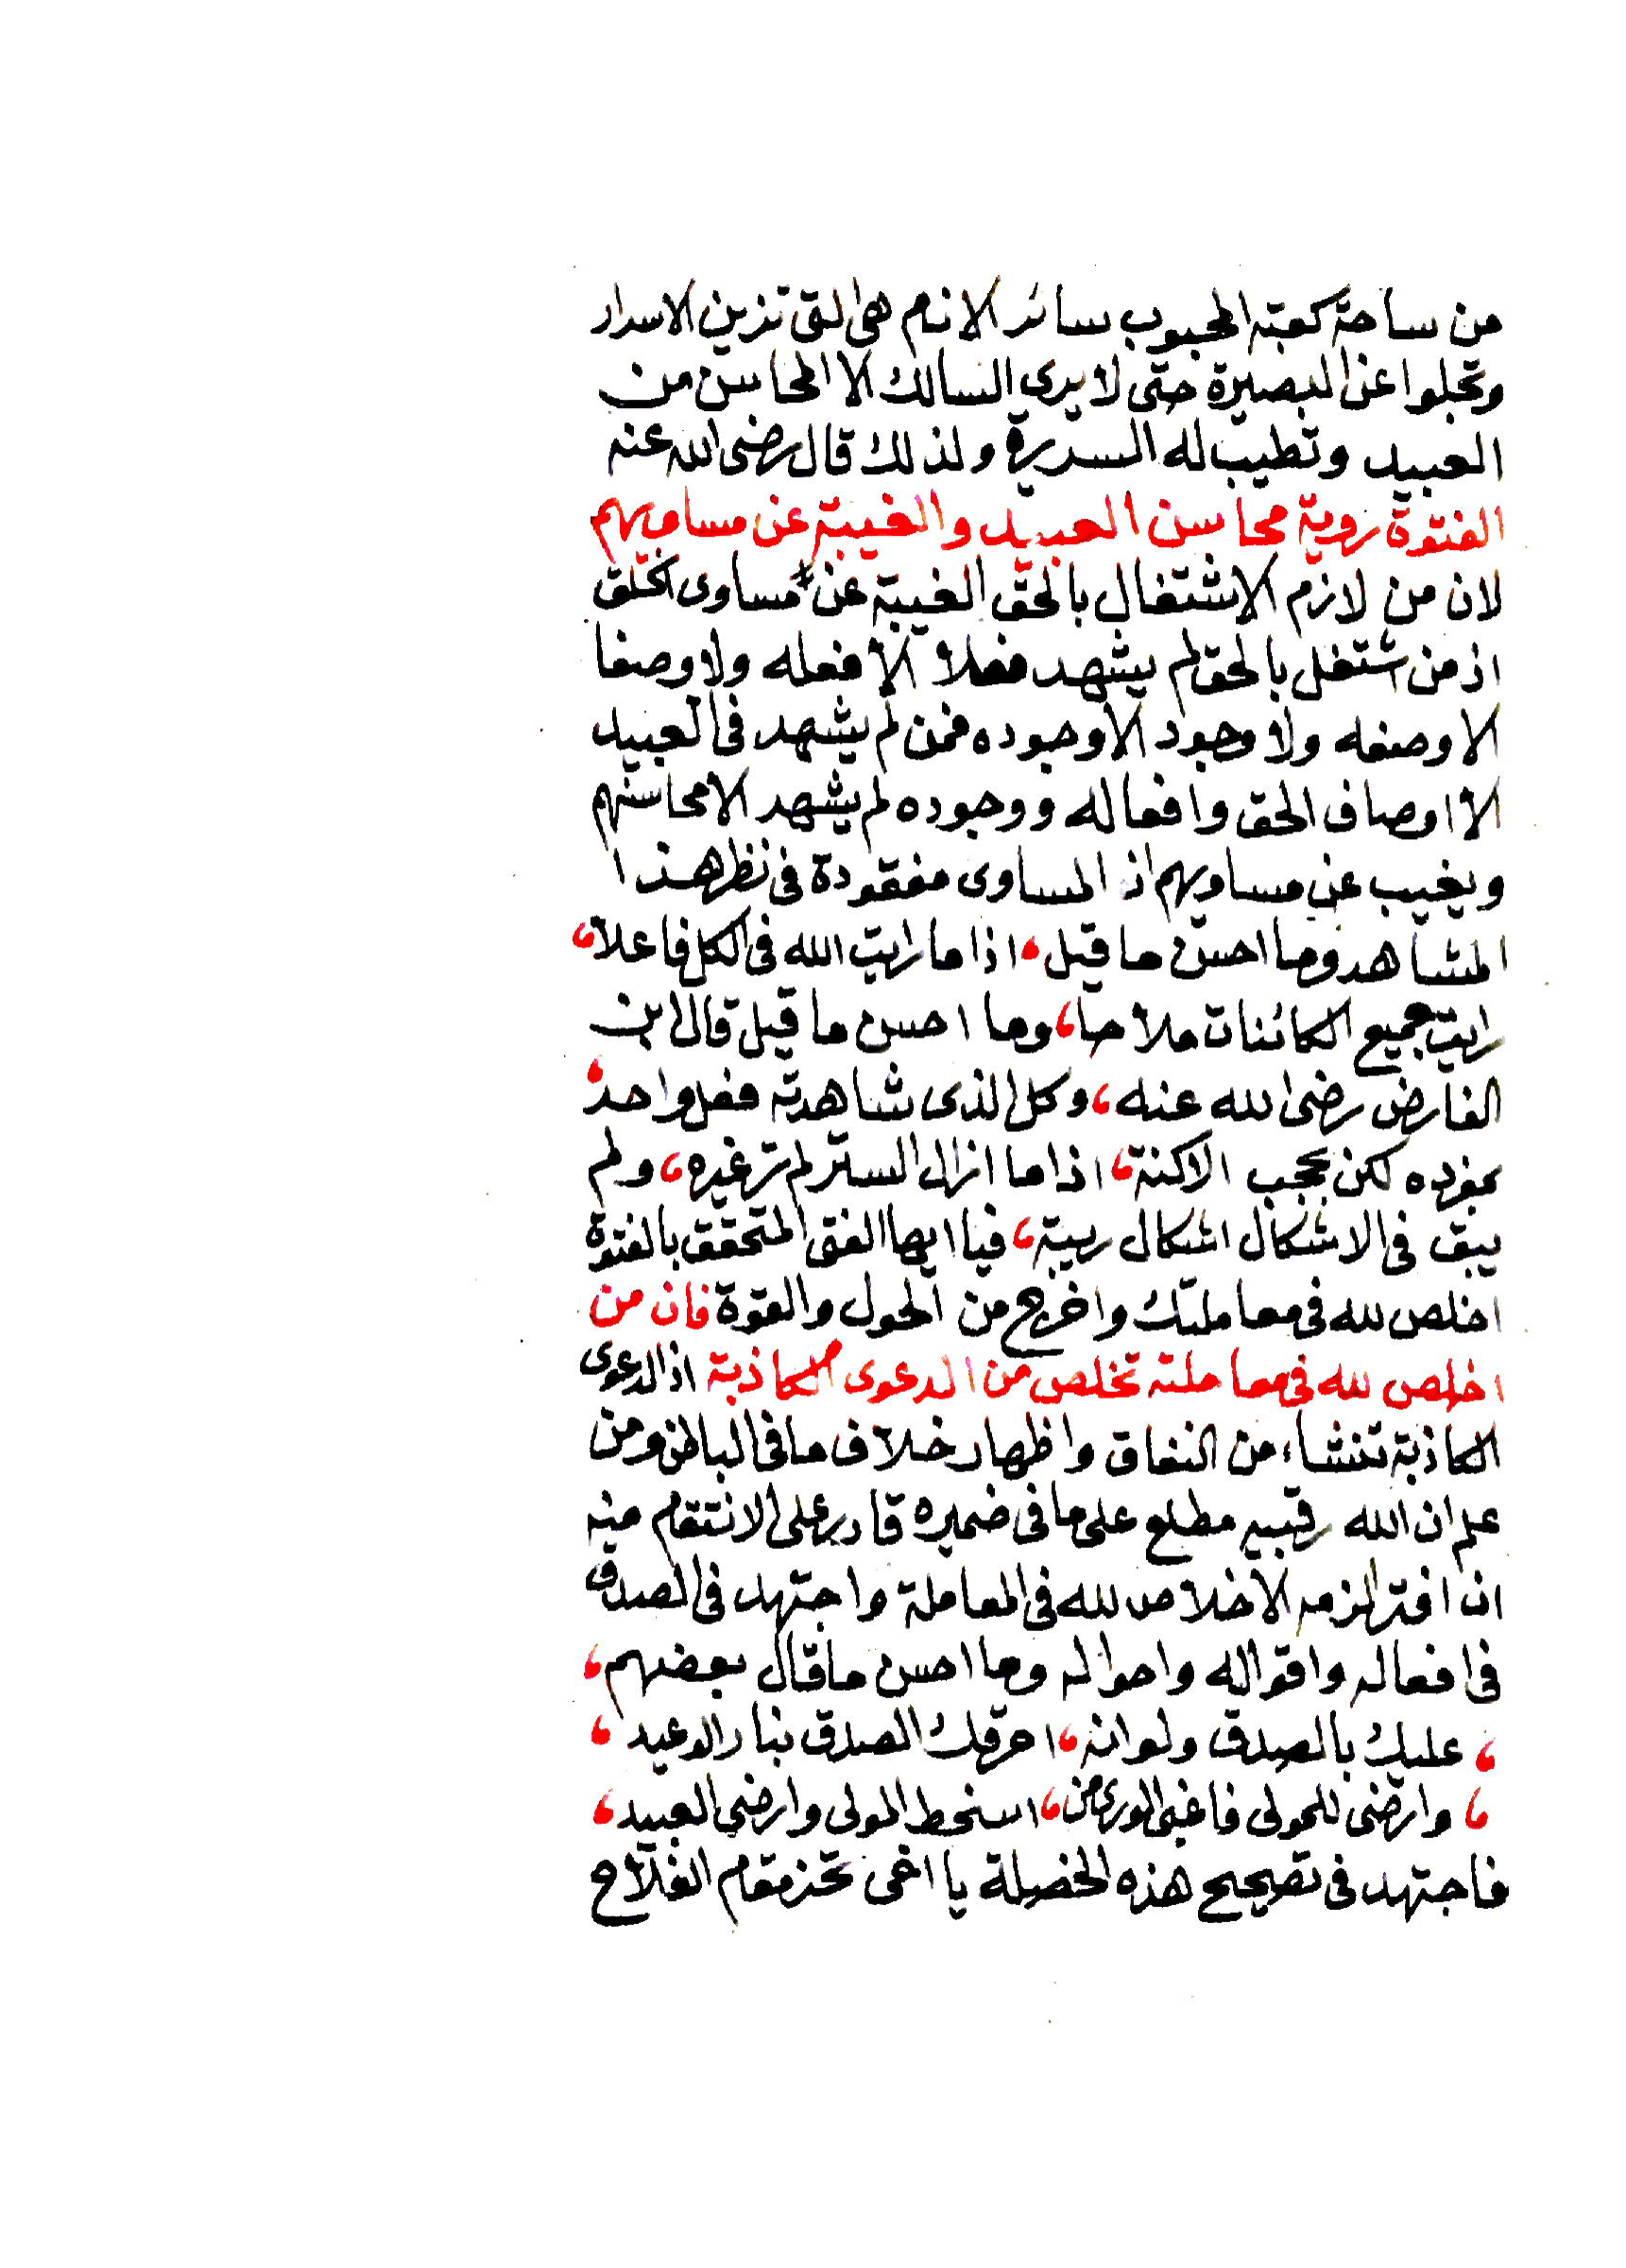 من ساحة كعبة المحبوب سائر الانام هي التي تزين الاسرار
وتجلوا عن البصيرة حتى لا يرى السالك الا المحاسن من
العبيد وتطيب له السريرة ولذلك قال رضى الله عنه
الفتوة روية محاسن العبيد والغيبة عن مساويهم
لان من لازم الاشتغال بالحق الغيبة عن مساوى الخلق
اذ من اشتغل بالحق لم يشهد فعلا الا فعله ولا وصفا
الا وصفه ولا وجود الا وجوده فمن لم يشهد فى العبيد
الا اوصاف الحق وافعاله ووجوده لم يشهد الا محاسنهم
ويغيب عن مساويهم اذ المساوى مفقودة فى نظر هذا
المشاهد وما احسن ما قيل، اذا ما رايت الله فى الكل فاعلا،
رايت جميع الكائنات ملاحا، وما احسن ما قيل قال ابن
الفارض رضى الله عنه، وكل الذى شاهدته فعل واحد،
بمفرده لكن بحجب الاكنة، اذا ما ازال الستر لم تر غيره، ولم
يبق فى الاشكال اشكال ريبة، فيا ايها الفتى المتحقق بالفتوة
اخلص لله فى معاملتك واخرج من الحول والقوة فان من
اخلص لله فى معاملته تخلص من الدعوى الكاذبة اذ الدعوى
الكاذبة تنشاء من النفاق واظهار خلاف ما فى الباطن ومن
علم ان الله رقيبه مطلع على ما فى ضميره قادر على الانتقام منه
ان افتر لزمه الاخلاص لله فى المعاملة واجتهد فى الصدق
فى افعاله واقواله واحواله وما احسن ما قال بعضهم،
، عليك بالصدق ولو انه، احرقك الصدق بنار الوعيد،
، وارضى للمولى فاغبى الورى من، اسخط المولى وارضى العبيد،
فاجتهد فى تصحيح هذه الخصلة يا اخى تحز مقام الفلاح